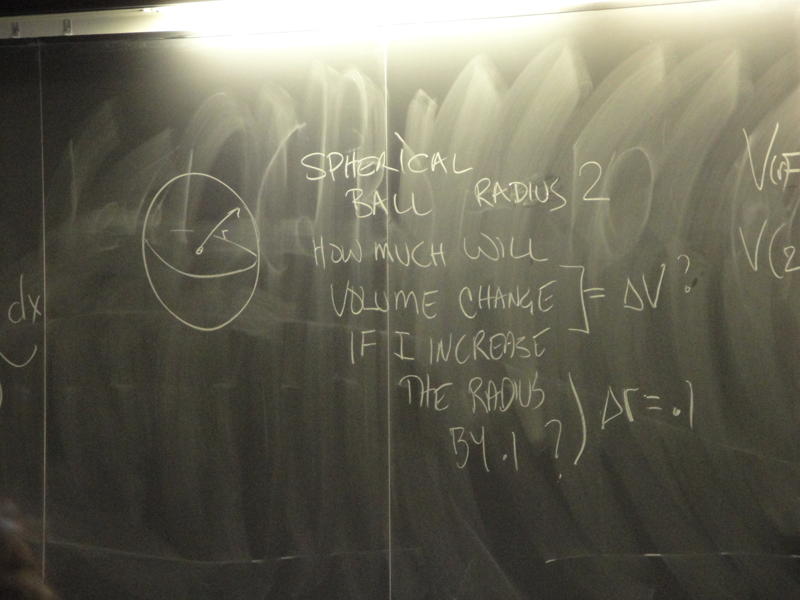 dx
r
SPHERICAL
BALL RADIUS 2
HOW MUCH WILL
VOLUME CHANGE ] = ΔV ?
IF I INCREASE
THE RADIUS
BY .1 ? ) Δr = .1
V(r)=
V(2